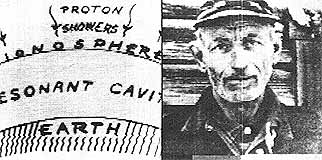 PROTON
SHOWERS
IONOSPHERE
ESONANT CAVIT
EARTH